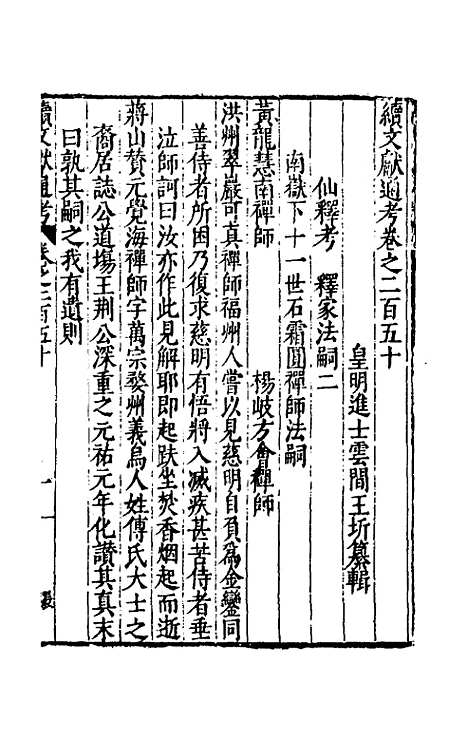 續文獻通考卷之二百五十
皇明進士雲間王圻纂輯
仙釋考　釋家法嗣二
南嶽下十一世石霜圓禪師法嗣
黃龍慧南禪師　楊岐方會禪師
洪州翠巖可真禪師福州人嘗以見慈明自負爲金鑾同
善侍者所困乃復求慈明有悟將入滅疾甚苦侍者垂
泣師訶曰汝亦作此見解耶即起趺坐焚香烟起而逝
蔣山贊元覺海禪師字萬宗婺州義烏人姓傅氏大士之
裔居誌公道場王荊公深重之元祐元年化讚其真末
曰孰其嗣之我有遺則
續文獻通考　卷之二百五十　一